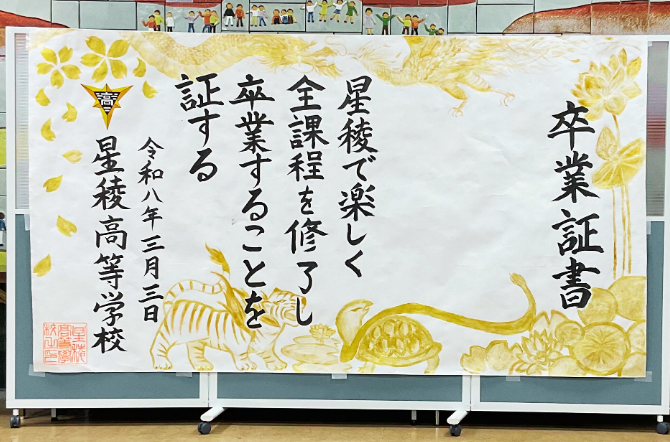 卒業証書
星稜で楽しく
全課程を修了し
卒業することを
証する
令和八年三月三日
高
星稜高等学校